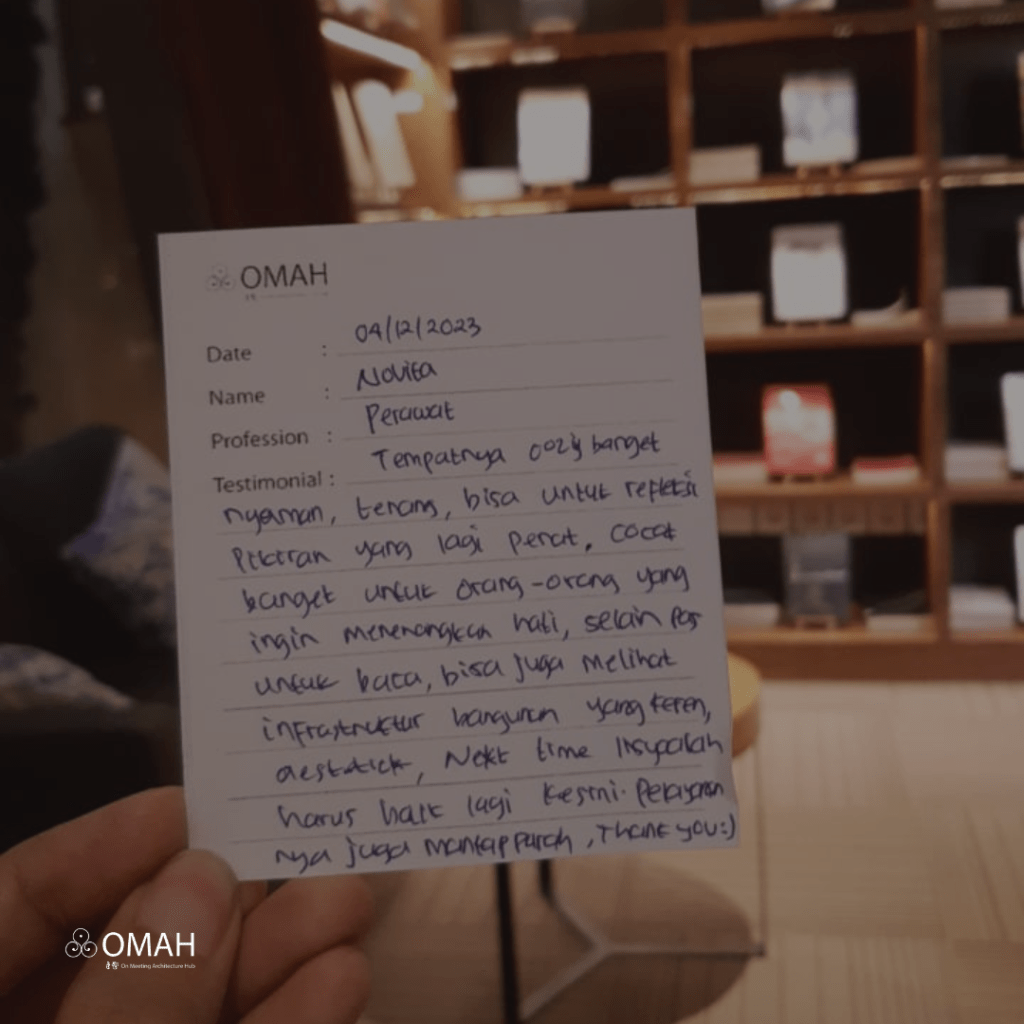 OMAH
Date : 04/12/2023
Name : Novita
Profession : Perawat
Testimonial : Tempatnya cozy banget
nyaman, tenang, bisa untuk refleksi
pikiran yang lagi penat, cocok
banget untuk orang-orang yang
ingin menenangkan hati, selain pas
untuk baca, bisa juga melihat
infrastruktur bangunan yang keren,
aestetick, Next time Insyaalah
harus balik lagi kesini. Pelayanan
nya juga mantap parah, Thank you:)
OMAH
On Meeting Architecture Hub